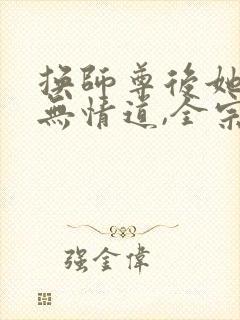 換師尊後她
無情道,全宗
强金偉